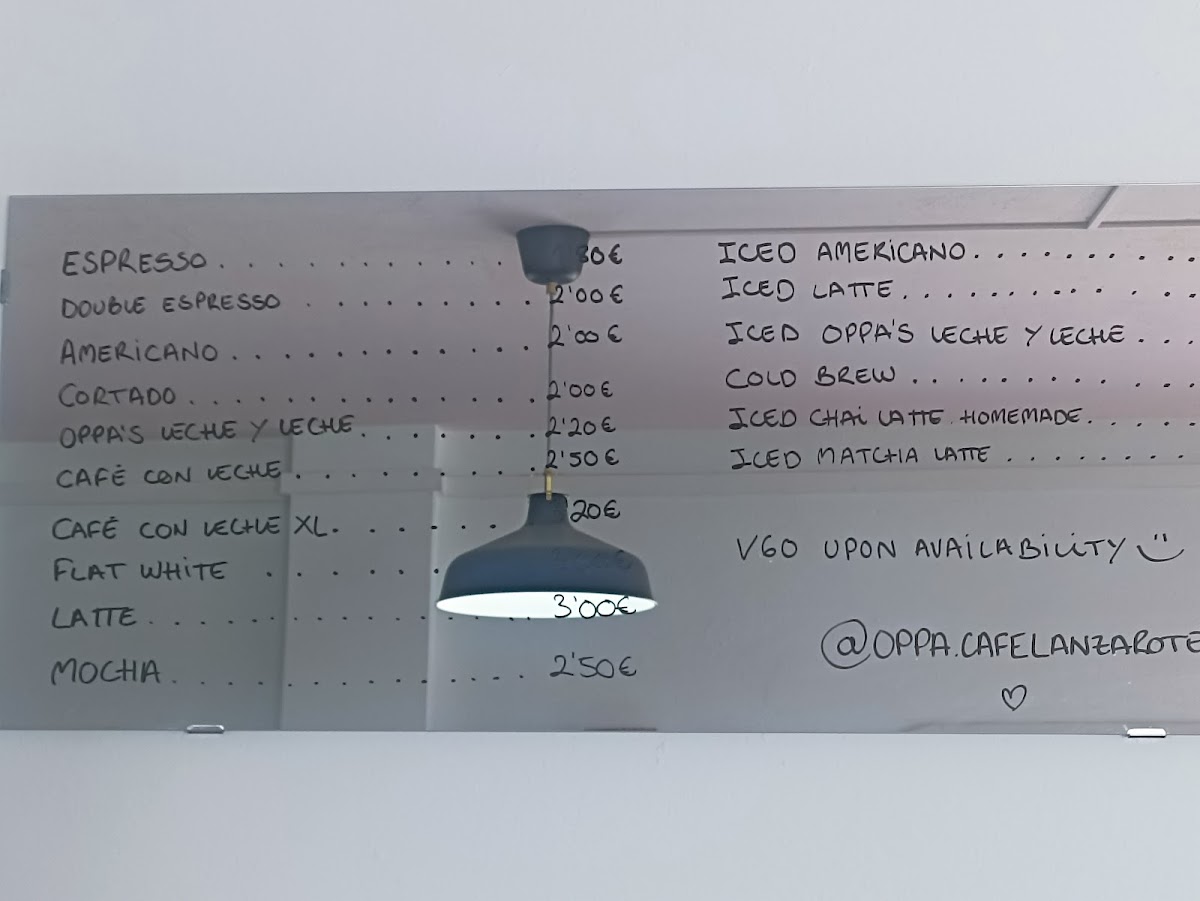 ESPRESSO . . . . . . . . . . . .
DOUBLE ESPRESSO . . . . . . . . . 2'00€
AMERICANO . . . . . . . . . . . 2'00€
CORTADO . . . . . . . . . . . . . 2'00€
OPPA'S LECHE Y LECHE . . . . . . . 2'20€
CAFÉ CON LECHE . . . . . . . . . . 2'50€
CAFÉ CON LECHE XL . . . . . .
FLAT WHITE . . . . . .
LATTE . . . . . . . . . . . . . . . 3'00€
MOCHA . . . . . . . . . . . . . . . 2'50€
ICED AMERICANO . . . . . . . . .
ICED LATTE . . . . . . . . . . .
ICED OPPA'S LECHE Y LECHE . . .
COLD BREW . . . . . . . . . . .
ICED CHAI LATTE HOMEMADE . . . .
ICED MATCHA LATTE . . . . . . . .
V60 UPON AVAILABILITY
@OPPA.CAFELANZAROTE